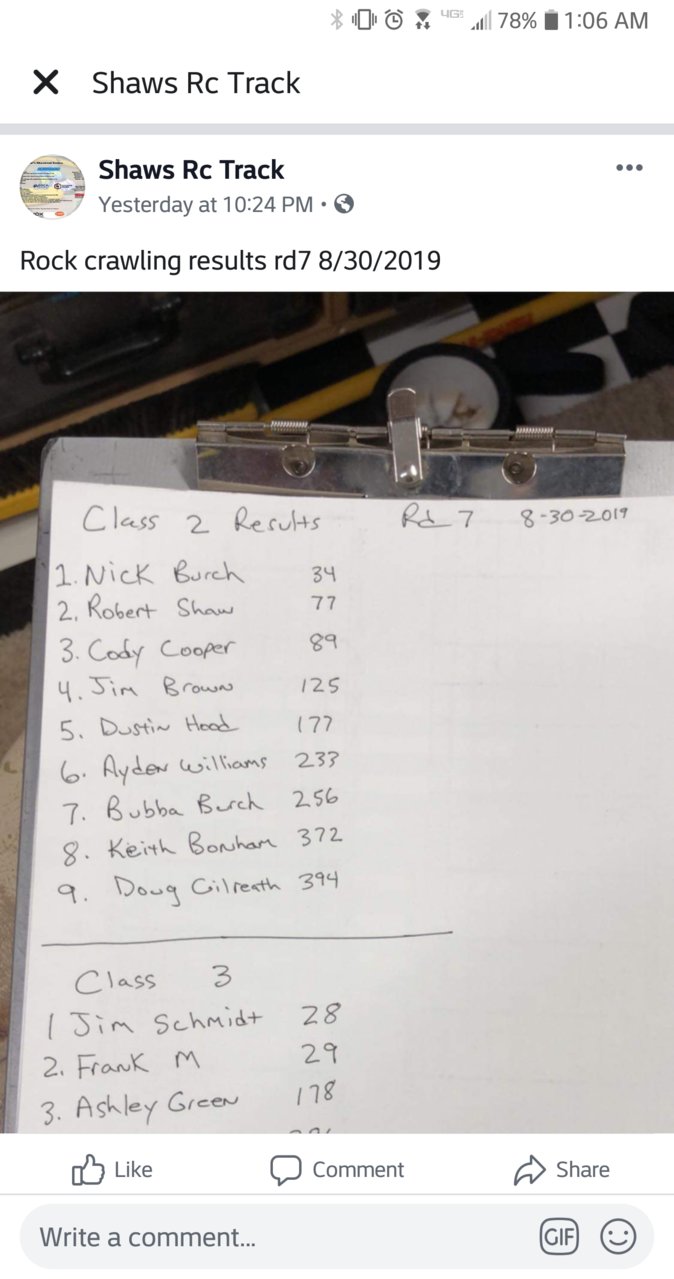 4G 78% 1:06 AM
Shaws Rc Track
Shaws Rc Track
Yesterday at 10:24 PM
Rock crawling results rd7 8/30/2019
Class 2 Results Rd 7 8-30-2019
1. Nick Burch 34
2. Robert Shaw 77
3. Cody Cooper 89
4. Jim Brown 125
5. Dustin Hood 177
6. Ayden Williams 233
7. Bubba Burch 256
8. Keith Bonham 372
9. Doug Gilreath 394
Class 3
1 Jim Schmidt 28
2. Frank M 29
3. Ashley Green 178
Like Comment Share
Write a comment... GIF